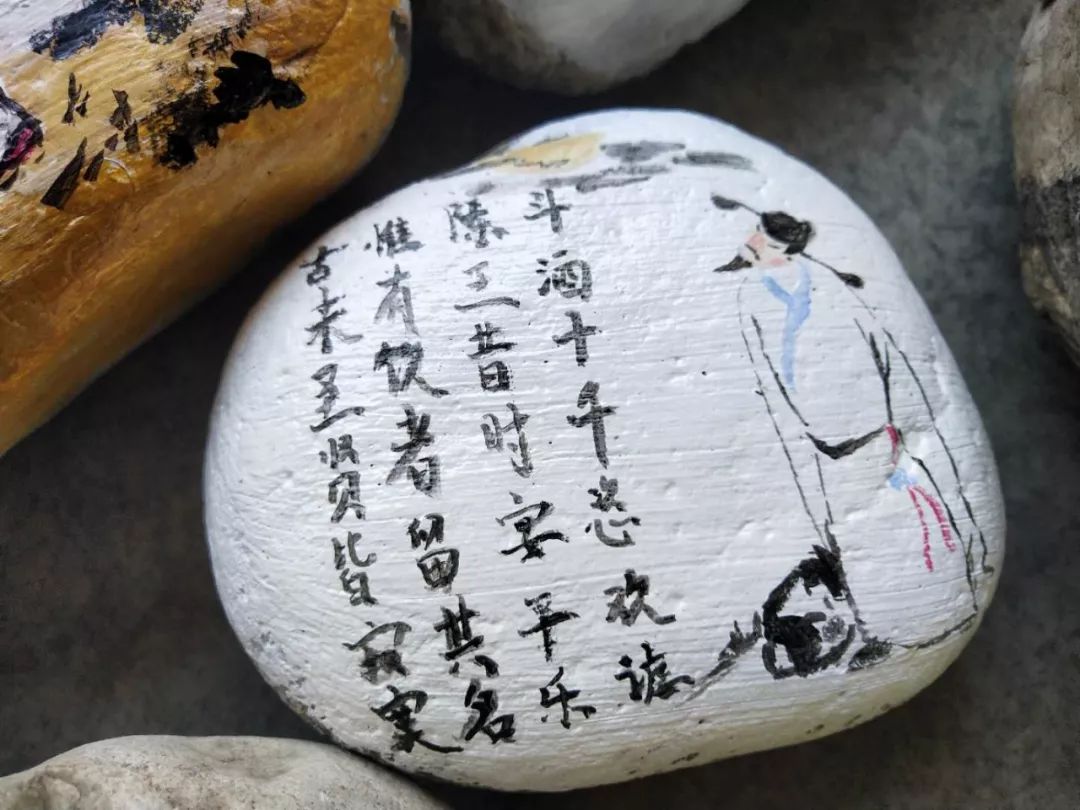 斗酒十千恣欢谑
陈王昔时宴平乐
惟有饮者留其名
古来圣贤皆寂寞